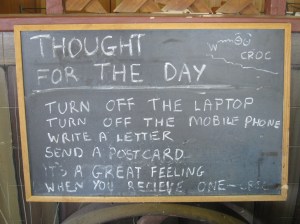 THOUGHT
FOR THE DAY
CROC
TURN OFF THE LAPTOP
TURN OFF THE MOBILE PHONE
WRITE A LETTER
SEND A POSTCARD
IT'S A GREAT FEELING
WHEN YOU RECIEVE ONE -